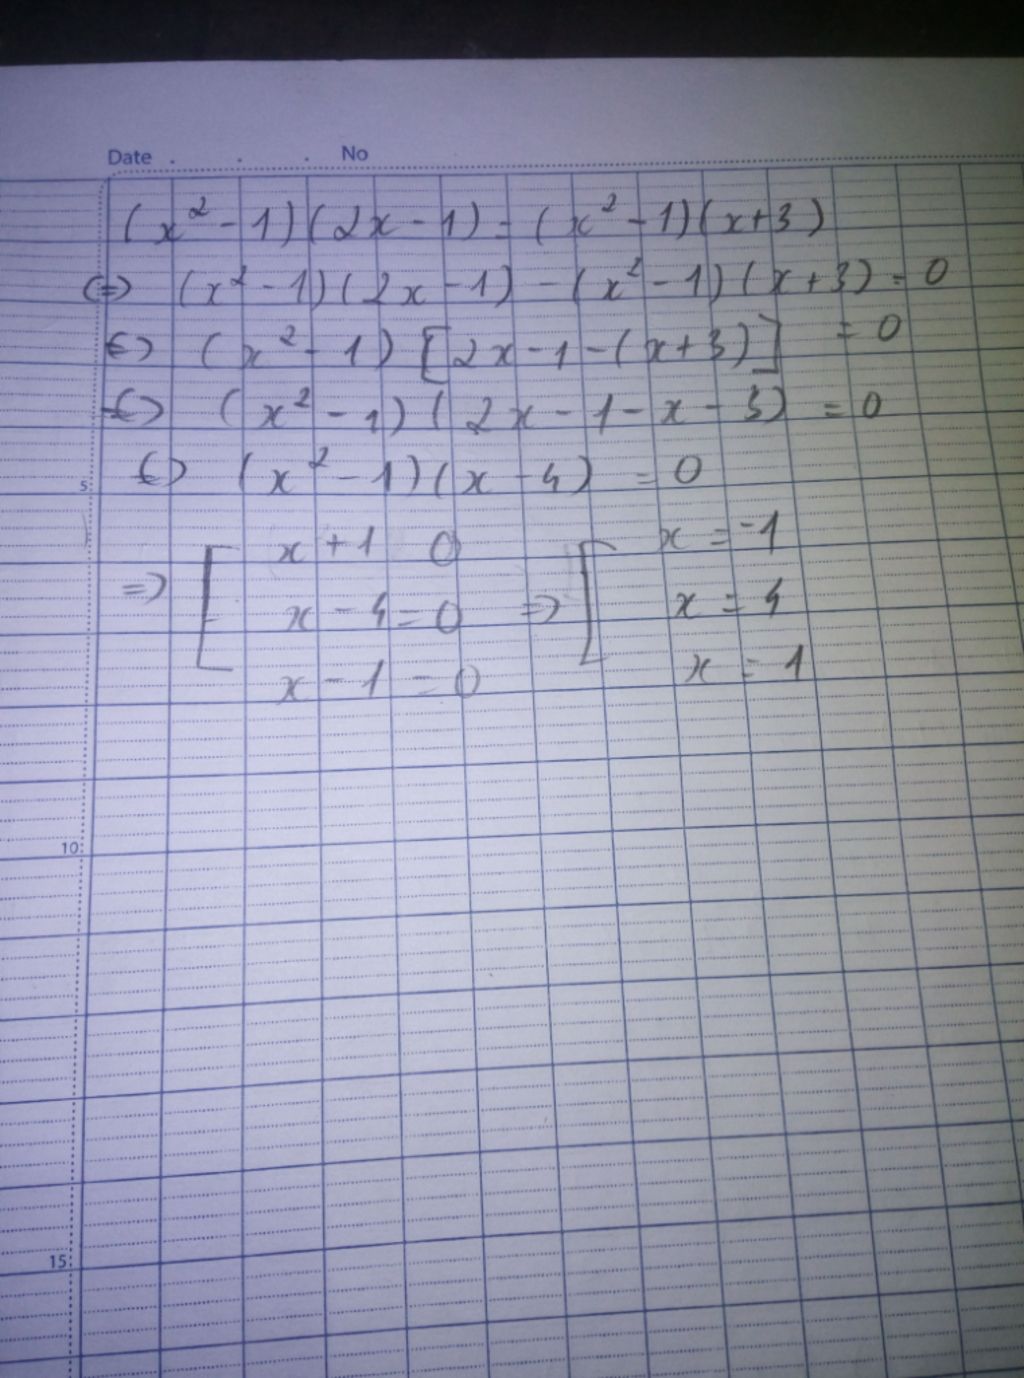 Date . . . No
(x² - 1)(2x - 1) = (x² - 1)(x + 3)
(=) (x² - 1)(2x - 1) - (x² - 1)(x + 3) = 0
(=) (x² - 1) [2x - 1 - (x + 3)] = 0
(=) (x² - 1)(2x - 1 - x - 3) = 0
5 (=) (x² - 1)(x - 4) = 0
=> [ x + 1 0
x - 4 = 0
x - 1 = 0
=> [ x = -1
x = 4
x = 1
10
15